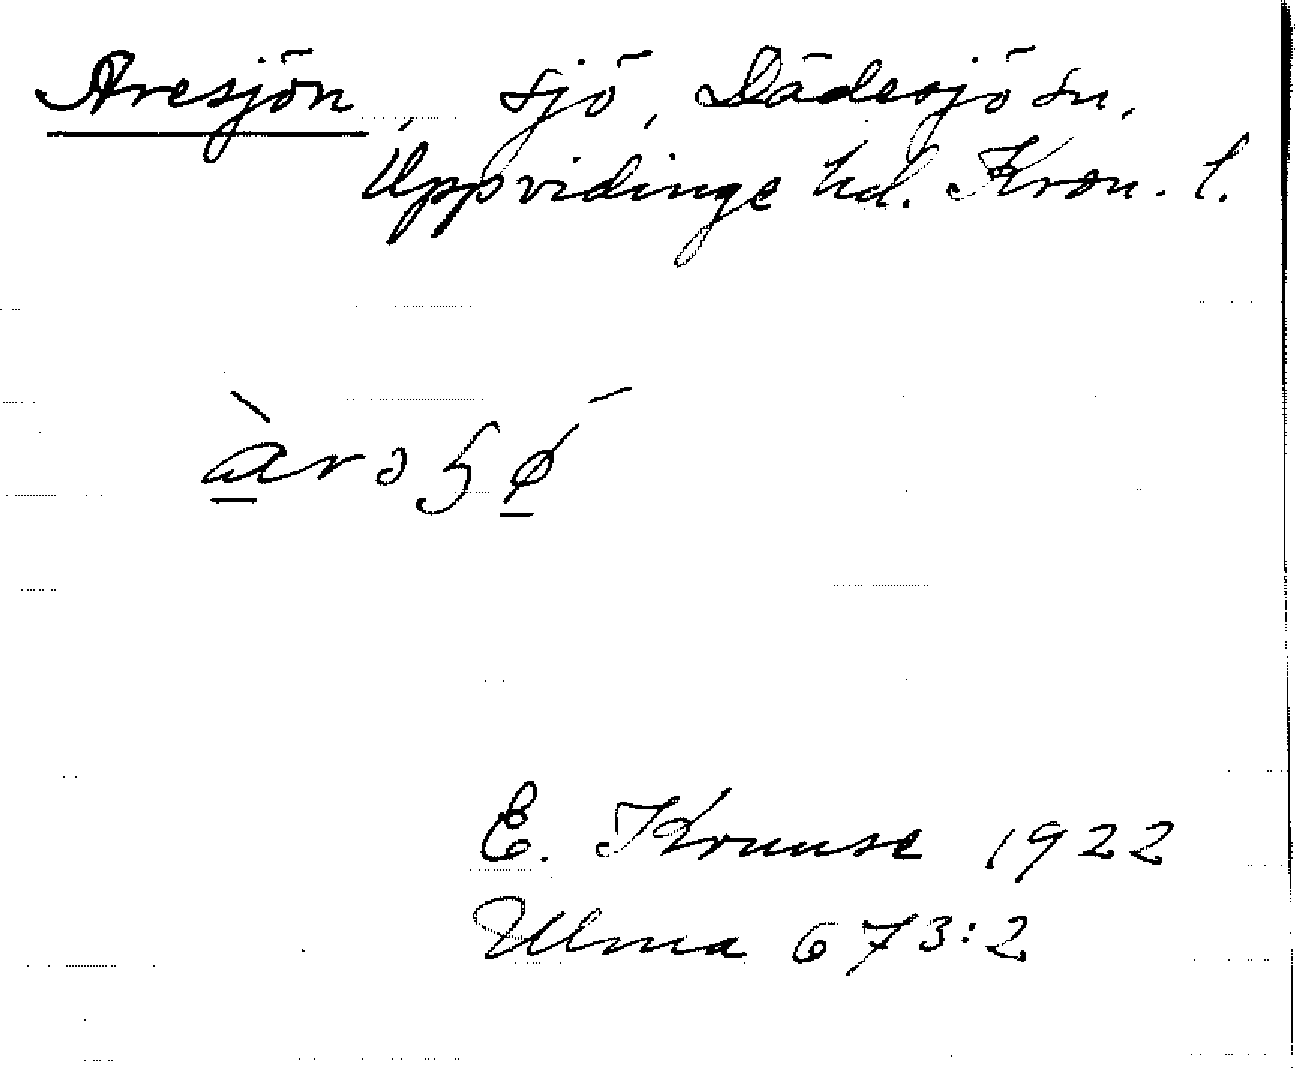 Aresjön, sjö, Dädesjö sn,
Uppvidinge hd. Kron. l.
E. Kruuse 1922
Ulma 673:2